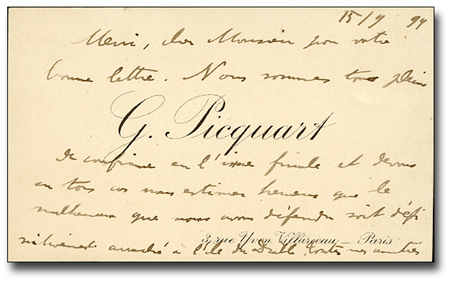 15/9 99
Merci, cher Monsieur pour votre
bonne lettre. Nous sommes tous pleins
G. Picquart
de confiance en l'issue finale et devons
en tous cas nous estimer heureux que le
malheureux que nous avons défendu soit défi
nitivement arraché à l'île du diable, toutes nos
3, rue Yvon Villarceau _ Paris